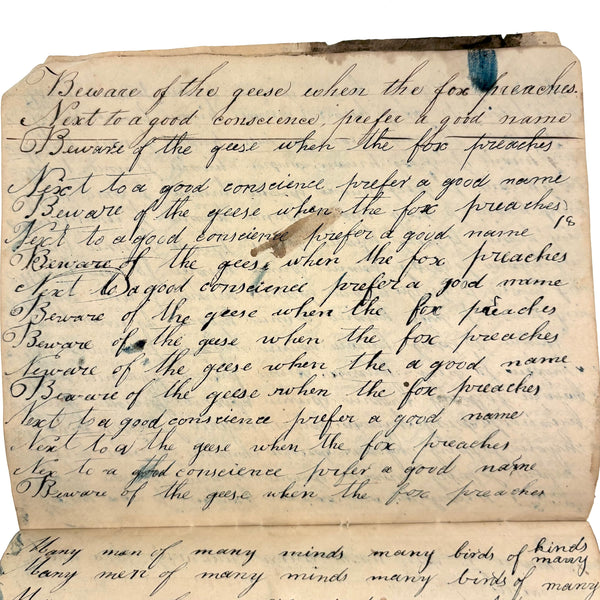 Beware of the geese when the fox preaches.
Next to a good conscience prefer a good name
Beware of the geese when the fox preaches
Next to a good conscience prefer a good name
Beware of the geese when the fox preaches
18
Next to a good conscience prefer a good name
Beware of the geese when the fox preaches
Next to a good conscience prefer a good name
Beware of the geese when the fox preaches
Beware of the geese when the fox preaches
Neware of the geese when the a good name
Beware of the geese when the fox preaches
Next to a good conscience prefer a good name
Next to a the geese when the fox preaches
Nex to a good conscience prefer a good name
Beware of the geese when the fox preaches
Many men of many minds many birds of kinds
many
Many men of many minds many birds of many